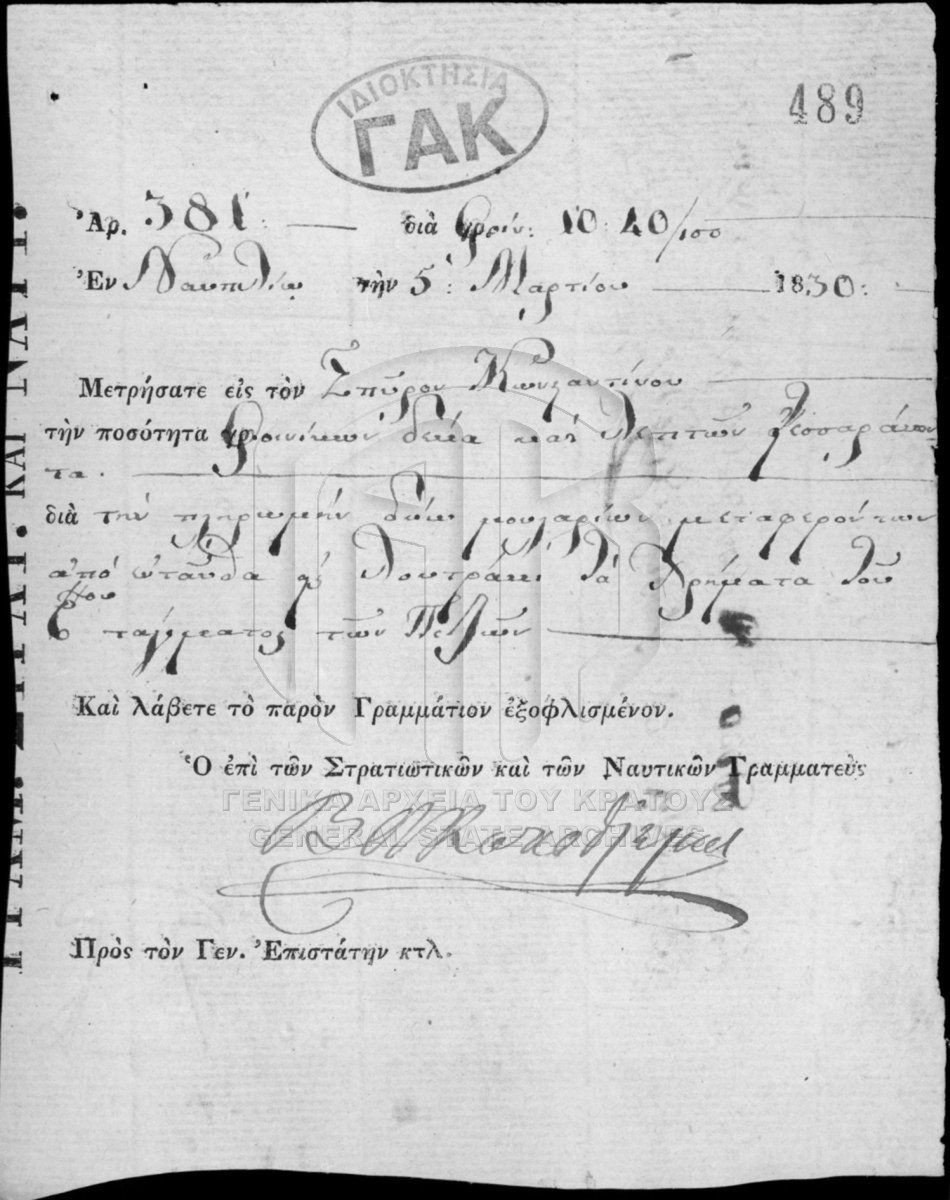 ΙΔΙΟΚΤΗΣΙΑ
ΓΑΚ
489
Ἀρ. 381: διὰ φοίν: 10: 40/100
Ἐν Ναυπλίῳ τὴν 5: Μαρτίου 1830:
Μετρήσατε εἰς τὸν Σπῦρον Κωνσταντίνου
τὴν ποσότητα φοινίκων δέκα καὶ λεπτῶν τεσσαράκον
τα.
διὰ τὴν πληρωμὴν δύω μουλαρίων μεταφερόντων
ἀπὸ ἐνταῦθα εἰς Λουτράκι τὰ χρήματα τοῦ
τάγματος τῶν
Καὶ λάβετε τὸ παρὸν Γραμμάτιον ἐξοφλισμένον.
Ὁ ἐπὶ τῶν Στρατιωτικῶν καὶ τῶν Ναυτικῶν Γραμματεὺς
ΓΕΝΙΚΑ ΑΡΧΕΙΑ ΤΟΥ ΚΡΑΤΟΥΣ
GENERAL STATE ARCHIVES
Πρὸς τὸν Γεν. Ἐπιστάτην κτλ.